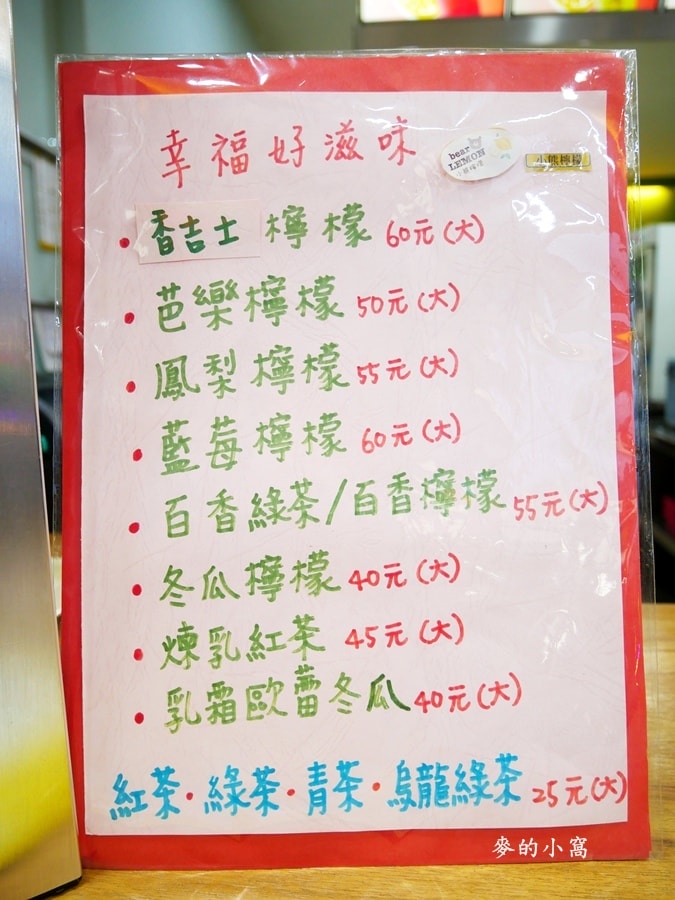 幸福好滋味
bear LEMON
小熊檸檬
小熊檸檬
• 香吉士檸檬 60元(大)
• 芭樂檸檬 50元(大)
• 鳳梨檸檬 55元(大)
• 藍莓檸檬 60元(大)
• 百香綠茶/百香檸檬 55元(大)
• 冬瓜檸檬 40元(大)
• 煉乳紅茶 45元(大)
• 乳霜歐蕾冬瓜 40元(大)
紅茶・綠茶・青茶・烏龍綠茶 25元(大)
麥的小窩